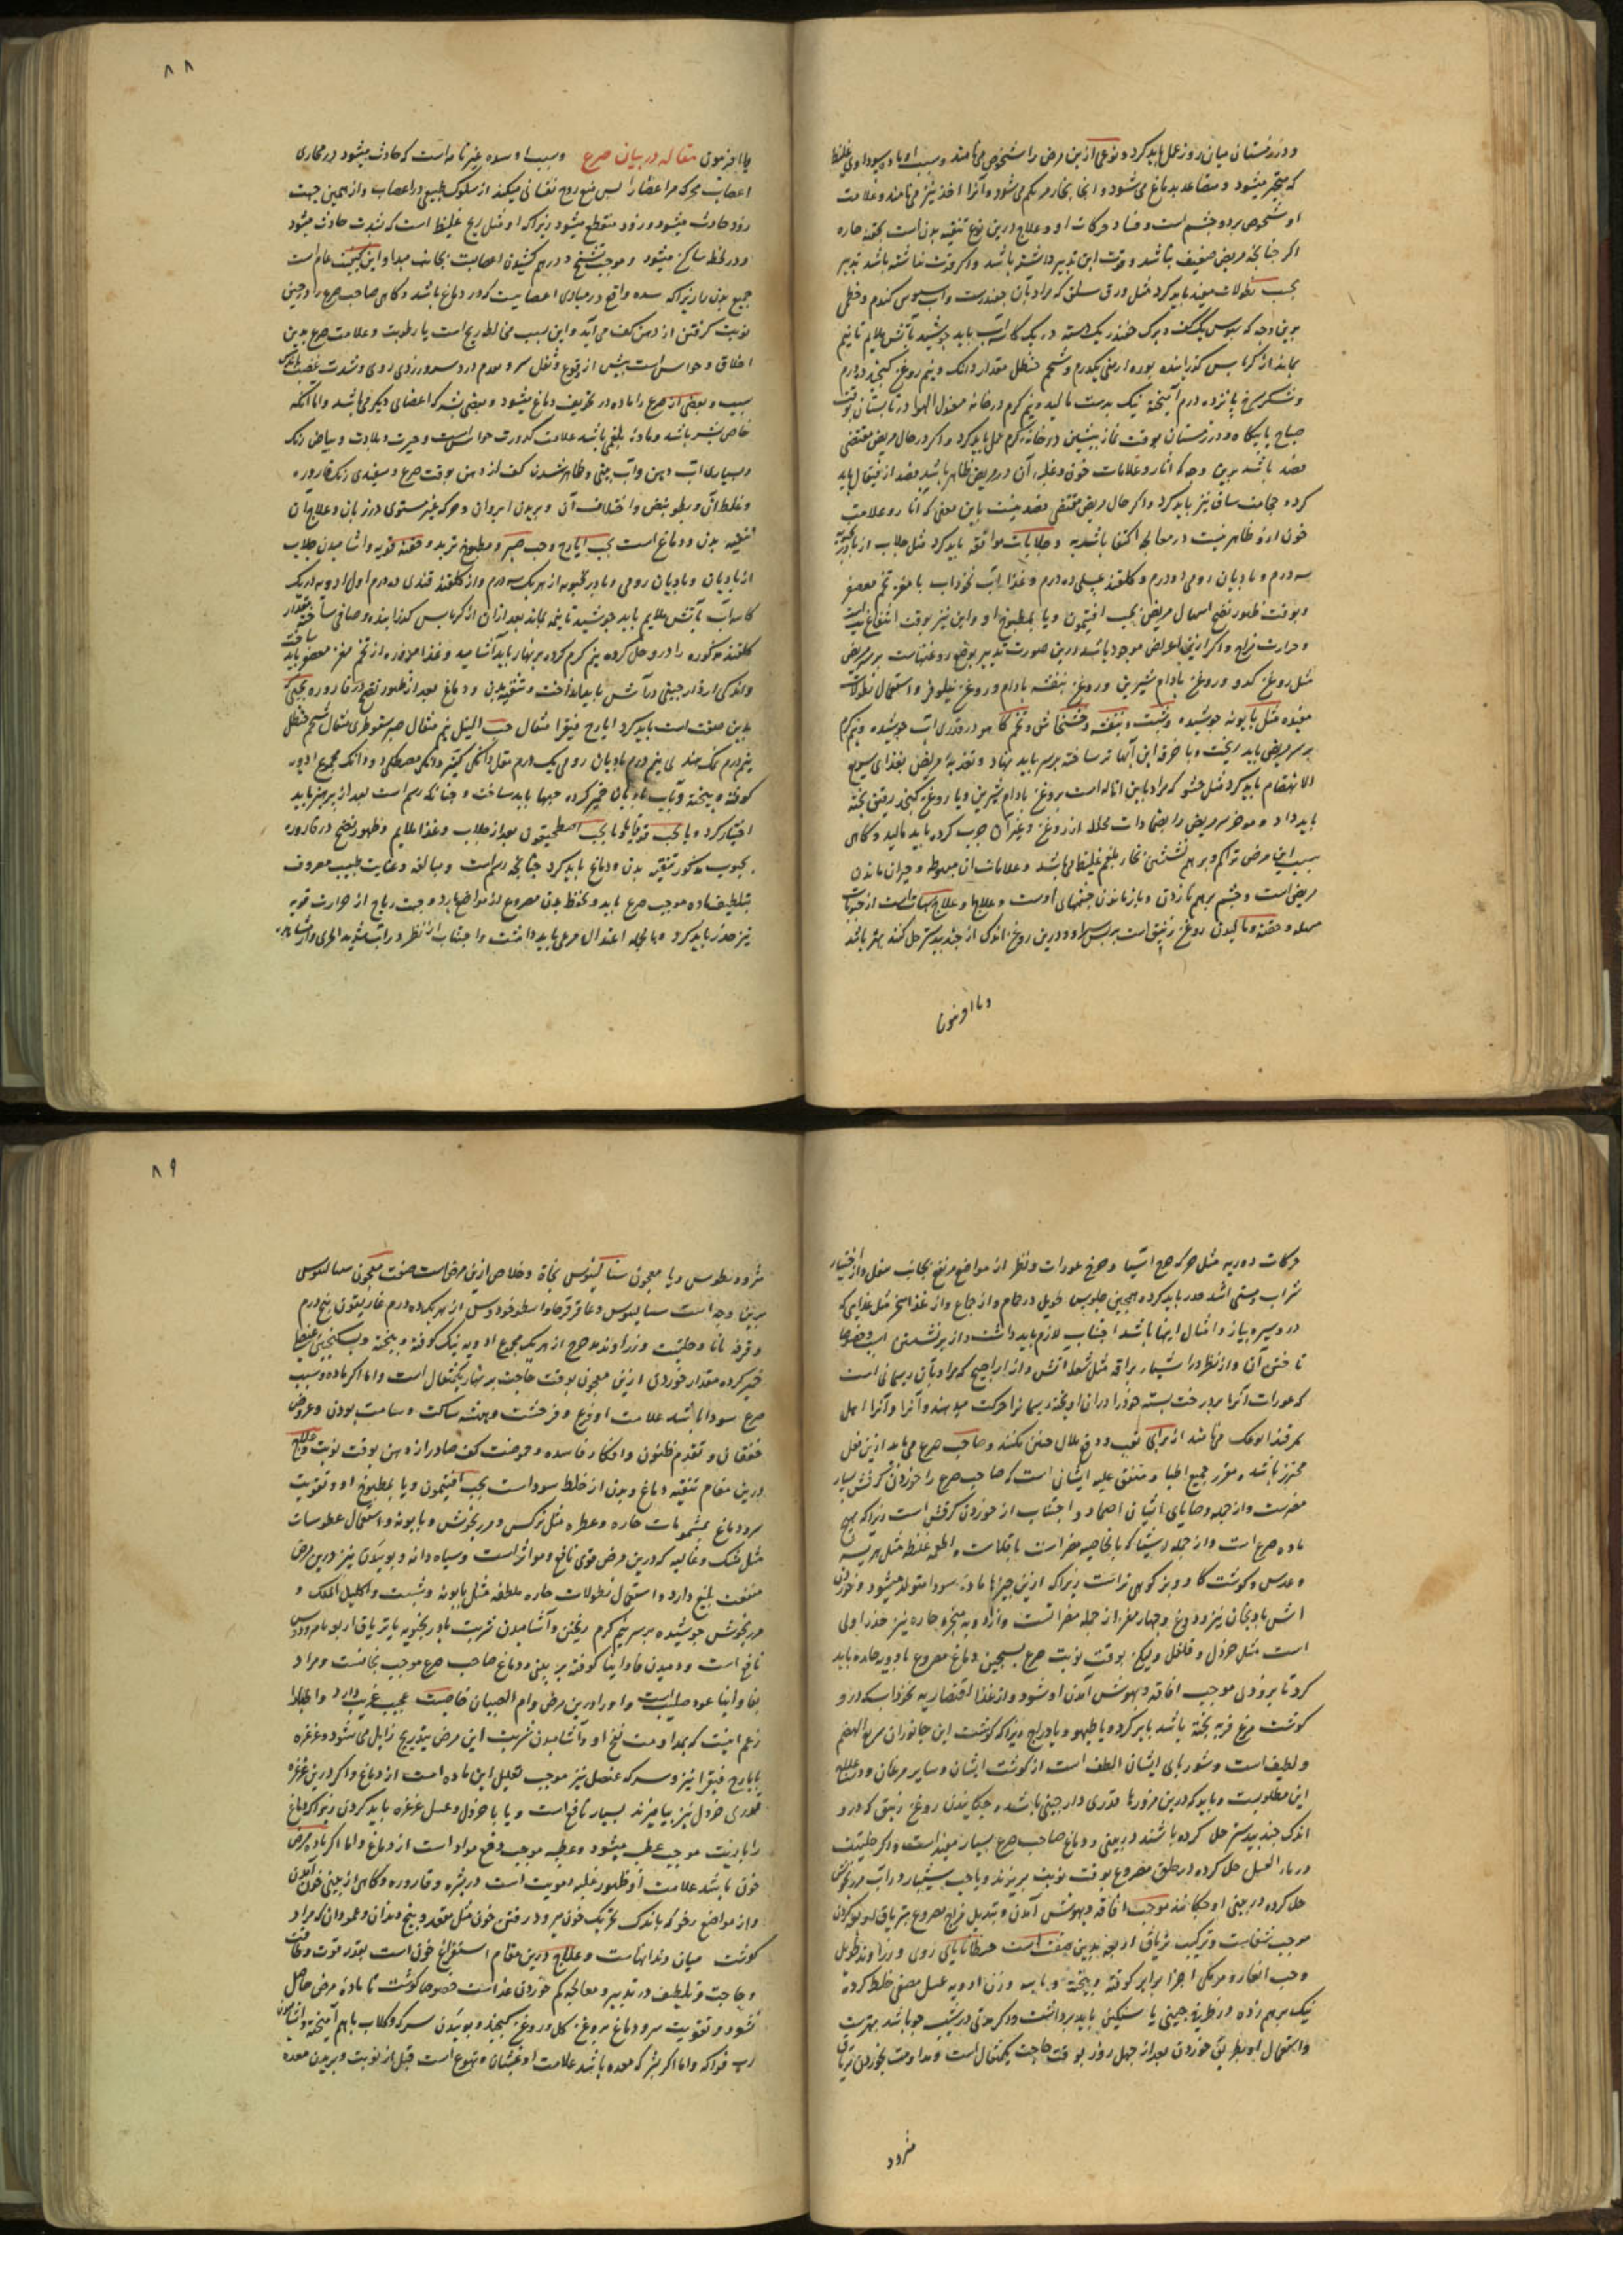 و در زمستان میان روز عمل باید کرد و نوعی ازین مرض را شخوص می نامند و سبب او ماده سوداوی غلیظ
که متبخر میشود و متصاعد بدماغ می شود و انجا بخار مریکم می شود و آنرا اخذ نیز می نامند و علامت
او شخوص هر دو چشم است و فساد حرکات او و علاج درین نوع تنقیه بدن است بحقنه حاره
اگر چنانچه مریض ضعیف نباشد و قوت این تدبیر داشته باشد و اگر قوت نداشته باشد تدبیر
بحسب نطولات مفیده باید کرد مثل ورق سلق که مراد بآن چغندرست و آب سبوس گندم و خطمی
برین وجه که سبوس یک کف و برک چغندر یک دسته در یک کاسه آب باید جوشید بآتش ملایم تا نیم
بماند از کرباس گذرانیده بوره ارمنی یکدرم و شحم حنظل مقدار دانک و نیم روغن کنجد ده درم
و شکر سرخ پانزده درم آمیخته نیک بدست مالید و نیم گرم در خانه معتدل الهوا در تابستان بوقت
صباح پایگاه و در زمستان بوقت نماز پیشین در خانه گرم عمل باید کرد و اگر در حال مریض مقتضی
فصد باشد برین وجه که آثار و علامات خون و غلبه آن در مریض ظاهر باشد فصد از قیفال باید
کرد و حجامت ساق نیز باید کرد و اگر حال مریض مقتضی فصد نیست باین معنی که آثار و علامت
خون ازو ظاهر نیست در معالجه اکتفا باشد به جلابات موافقه باید کرد مثل جلاب از بادرنجبویه
سه درم و بادیان رومی دو درم و گلقند عسلی ده درم و غذا آب نخوداب با مغز تخم معصفر
و بوقت ظهور نضج اسهال مریض بحب افتیمون و یا بمطبوخ او و این نیز بوقت انتفاع
و حرارت مزاج و اگر ازین اعراض موجود باشد درین صورت تدبیر بوضع روغنهاست بر سر مریض
مثل روغن کدو و روغن بادام شیرین و روغن بنفشه بادام و روغن نیلوفر و استعمال نطولات
مفیده مثل بابونه جوشیده و شبت و بنفشه و خشخاش و تخم کاهو در قدری آب جوشیده و نیم گرم
بر سر مریض باید ریخت و یا خرقه باین آبها تر ساخته بر سر باید نهاد و تغذیه مریض بغذای سریع
الانهضام باید کرد مثل حشو که مراد باین اماله است بروغن بادام شیرین و یا روغن کنجد رقیق پخته
باید داد و موخر سر مریض را بضمادات محلله از روغن و غیر آن چرب کرده باید مالید و گاهی
سبب این مرض تراکم و بر هم نشستن بخار بلغم غلیظ می باشد و علامات آن مبهوط و حیران ماندن
مریض است و چشم بر هم نازدن و باز ماندن چشمهای اوست و علاج علاج سبات است از حبوب
مسهله و حقنه و مالیدن روغن زنبق است بر پس سر او و درین روغن اندکی از جندبیدستر حل کنند بهتر باشد
و یا افربیون
۸۸
یا افربیون مقاله در بیان صرع و سبب او سده غیر تامه است که حادث میشود در مجاری
اعصاب محرکه مر اعضا را پس منع روح نفسانی میکند از سلوک طبیعی در اعصاب و از همین جهت
زود حادث میشود و زود منقطع میشود زیرا که او مثل ریح غلیظ است که بشدت حادث میشود
و در لحظه ساکن میشود و موجب تشنج و در هم کشیدن اعصابست بجانب مبدا و این کیفیت عام است
جمیع بدن را زیرا که سده واقع در مبادی اعصابیست که در دماغ باشد و گاهی صاحب صرع را در حین
نوبت گرفتن از دهن کف می آید و این بسبب مخالطه ریح است با رطوبت و علامت صرع بدین
اخلاق و حواس است پیش از وقوع و ثقل سر و دوام درد سر و زردی روی و شدت غضب باندک
سبب و بعضی از صرع را ماده در تجویف دماغ میشود و بعضی بشرکه اعضای دیگر می باشد و اما آنکه
خاص بسر باشد و ماده بلغم باشد علامت کدورت حواس است و حیرت و بلادت و بیاض رنگ
و بسیاری آب دهن و آب بینی و ظاهر شدن کف از دهن بوقت صرع و سفیدی رنگ قاروره
و غلظ آن و بطو نبض و اختلاف آن و پریدن ابروان و حرکه غیر مستوی در زبان و علاج آن
تنقیه بدن و دماغ است بحب ایارج و حب صبر و مطبوخ تربد و حقنه قویه و آشامیدن جلاب
از بادیان و بادیان رومی و بادرنجبویه از هر یک سه درم و از گلقند قندی ده درم اول ادویه در یک
کاسه آب بآتش ملایم باید جوشید تا نیمه بماند بعد از آن از کرباس گذرانیده و صافی ساخته مقدار
گلقند مذکوره را درو حل کرده نیم گرم کرده بر نهار باید آشامید و غذا مزوره از تخم مغز معصفر باید ساخت
و اندکی از دارچینی در آش باید انداخت و تنقیه بدن و دماغ بعد از ظهور نضج در قاروره بحبی که
بدین صفت است باید کرد ایارج فیقرا مثقال حب النیل نیم مثقال صبر سقوطری مثقال شحم حنظل
نیم درم نمک هندی نیم درم بادیان رومی یک درم مقل دانکی کتیرا دانکی مصطکی دو دانک مجموع ادویه
کوفته و بیخته و بآب بادیان خمیر کرده حبها باید ساخت و چنانکه رسم است بعد از پرهیز باید
اختیار کرد و یا بحب قوقایا و یا بحب اصطمحیقون بعد از جلاب و غذا ملایم و ظهور نضج در قاروره
بحبوب مذکور تنقیه بدن و دماغ باید کرد چنانچه رسم است و مبالغه و غایت طبیب معروف
بتلطیف ماده موجب صرع باید و بحفظ بدن مصروع از مواضع بارد و جهت ریاح از حرارت قویه
نیز حذر باید کرد و بالجمله اعتدال مرعی باید داشت و اجتناب از نظر در آب شدید الجری و از مشاهده
حرکات دوریه مثل حرکه چرخ آسیا و چرخ عورات و نظر از مواضع مرتفع بجانب سفل و از اختیار
شراب مستی حذر باید کرد و همچنین جلوس طویل در حمام و از جماع و از غذا مبخر مثل غذایی که
درو سیر و پیاز و امثال اینها باشد اجتناب لازم باید داشت و از بر نشستن اسب و خصوصا
تاختن آن و از نظر در اشیاء براقه مثل شعله آتش و از اراجیح که مراد بآن ریسمانی است
که عورات آنرا بر درخت بسته خود را در ان آویخته ریسمان را حرکت میدهند و آنرا اهل
سمرقند می نامند از برای لعب و دفع ملال حسن نکنند و صاحب صرع می باید ازین فعل
محترز باشد و مقرر جمیع اطبا و متفق علیه ایشان است که صاحب صرع را خوردن کرفس بسیار
مضرست و از جمله وصایای ایشان احتما و اجتناب از خوردن کرفس است زیرا که مهیج
ماده صرع است و از جمله اشیا که بالخاصیه مضر است باقلاست و اطعمه غلیظه مثل هریسه
و عدس و گوشت گاو و بز کوهی نر است زیرا که ازین چیزها ماده سودا متولد میشود و خوردن
آش بادنجان نیز و دوغ و چهارمغز از جمله مضراتست و از ادویه مبخره حاره نیز حذر اولی
است مثل خردل و فلفل و لیکن بوقت نوبت صرع تسخین دماغ مصروع بادویه حاده باید
کرد تا بزودی موجب افاقه و بهوش آمدن او شود و از غذا اقتصار به نخوداب که درو
گوشت مرغ فربه پخته باشد باید کرد و یا طیهو و یا دراج زیرا که گوشت این جانوران سریع الهضم
و لطیف است و شوربای ایشان الطف است از گوشت ایشان و سایر مرغان و در علاج
این مطلوبست و باید که درین مزورها قدری دارچینی باشد و چکانیدن روغن زنبق که درو
اندک جندبیدستر حل کرده باشند در بینی و دماغ صاحب صرع بسیار مفید است و اگر حلتیت
در ماء العسل حل کرده در حلق مصروع بوقت نوبت بریزند و یا حب شبیار در آب مرزنجوش
حل کرده در بینی او چکانند موجب افاقه و بهوش آمدن و تبدیل مزاج مصروع بتریاق اربعه کردن
موجب شفاست و ترکیب تریاق اربعه بدین صفت است جنطیانای رومی و زراوند طویل
و حب الغار و مرمکی اجزا برابر کوفته و بیخته و با سه وزن ادویه عسل مصفی خلط کرده
نیک بر هم زده در ظرف چینی یا سنگین باید برداشت و اگر مدتی در شعیر جو باشد بهترست
و استعمال او بطریق خوردن بعد از چهل روز بوقت حاجت یکمثقال است و مداومت بخوردن تریاق
مثرود
۸۹
مثرودیطوس و یا معجون سسالیوس نجاة و خلاص ازین مرض است صفت معجون سسالیوس
برین وجه است سسالیوس و عاقرقرحا و اسطوخودوس از هر یک ده درم غاریقون پنج درم
و قرفه مانا و حلتیت و زراوند مدحرج از هر یک مجموع ادویه نیک کوفته و بیخته و بسکنجبین عنصلی
خمیر کرده مقدار خوردن ازین معجون بوقت حاجت بر نهار یکمثقال است و اما اگر ماده و سبب
صرع سودا باشد علامت او فزع و فرحشت و همیشه ساکت و صامت بودن و عروض
خفقان و تقدم ظنون و افکار فاسده و حموضت کف صادر از دهن بوقت نوبت و علاج
درین مقام تنقیه دماغ و بدن از خلط سوداست بحب افتیمون و یا بمطبوخ او و تقویت
سر و دماغ بمشمومات حاره و عطره مثل نرگس و مرزنجوش و بابونه و استعمال عطوسات
مثل مشک و غالیه که درین مرض قوی نافع و موثر است و سیاه دانه و بوییدن نیز درین مرض
منفعت بلیغ دارد و استعمال نطولات حاره ملطفه مثل بابونه و شبت و اکلیل الملک و
مرزنجوش جوشیده بر سر نیم گرم ریختن و آشامیدن شربت بادرنجبویه با تریاق اربعه
نافع است و دمیدن فاوانیا کوفته بر بینی و دماغ صاحب صرع موجب نجاتست و مراد
بفاوانیا عود صلیب است و او را درین مرض و ام الصبیان خاصیت عجیب غریب دارد و اطبا را
زعم اینست که بمداومت نفخ او و آشامیدن شربت این مرض بتدریج زایل می شود و غرغره
بایارج فیقرا نیز و سرکه عنصل نیز موجب تحلیل این ماده است از دماغ و اگر درین غرغره
قدری خردل نیز بیامیزند بسیار نافع است و یا با خردل و عسل غرغره باید کردن زیرا که دماغ
را باذیت موجب عطسه میشود و عطسه موجب دفع مواد است از دماغ و اما اگر ماده مرض
خون باشد علامت او ظهور غلبه دمویت است در بشره و قاروره و گاهی از بینی خون آمدن
و از مواضع رخو که باندک تحریک خون میرود و رفتن خون مثل مقعد و بیخ دندان و عمودان که مراد
گوشت میان دندانهاست و علاج درین مقام استفراغ خون است بقدر قوت و طاقت
و حاجت و تلطیف در تدبیر و معالجه کم خوردن غذاست خصوصا گوشت تا ماده مرض حاصل
نشود و تقویت سر و دماغ بروغن گل و روغن کنجد و بوییدن سرکه و گلاب باهم آمیخته و آشامیدن
رب فواکه و اما اگر بشرکه معده باشد علامت او غثیان و تهوع است قبل از نوبت و پریدن معده